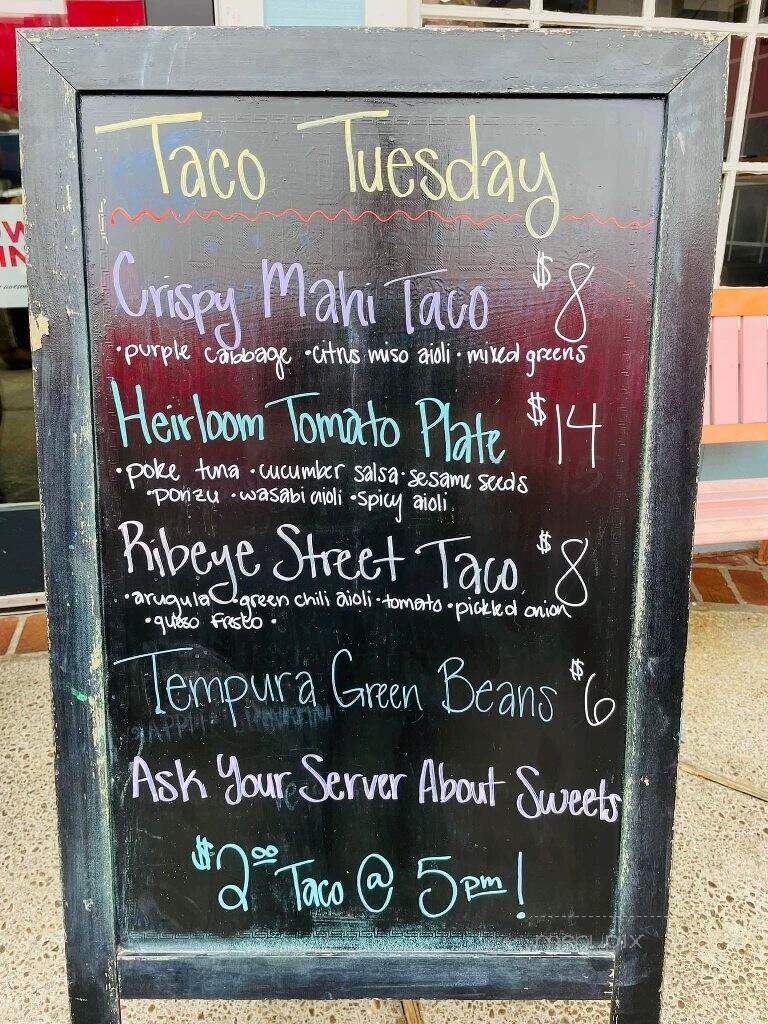 Taco Tuesday
Crispy Mahi Taco $8
•purple cabbage •citrus miso aioli •mixed greens
Heirloom Tomato Plate $14
•poke tuna •cucumber salsa •sesame seeds
•ponzu •wasabi aioli •spicy aioli
Ribeye Street Taco $8
•arugula •green chili aioli •tomato •pickled onion
•queso fresco •
Tempura Green Beans $6
Ask Your Server About Sweets
$2.00 Taco @ 5pm!